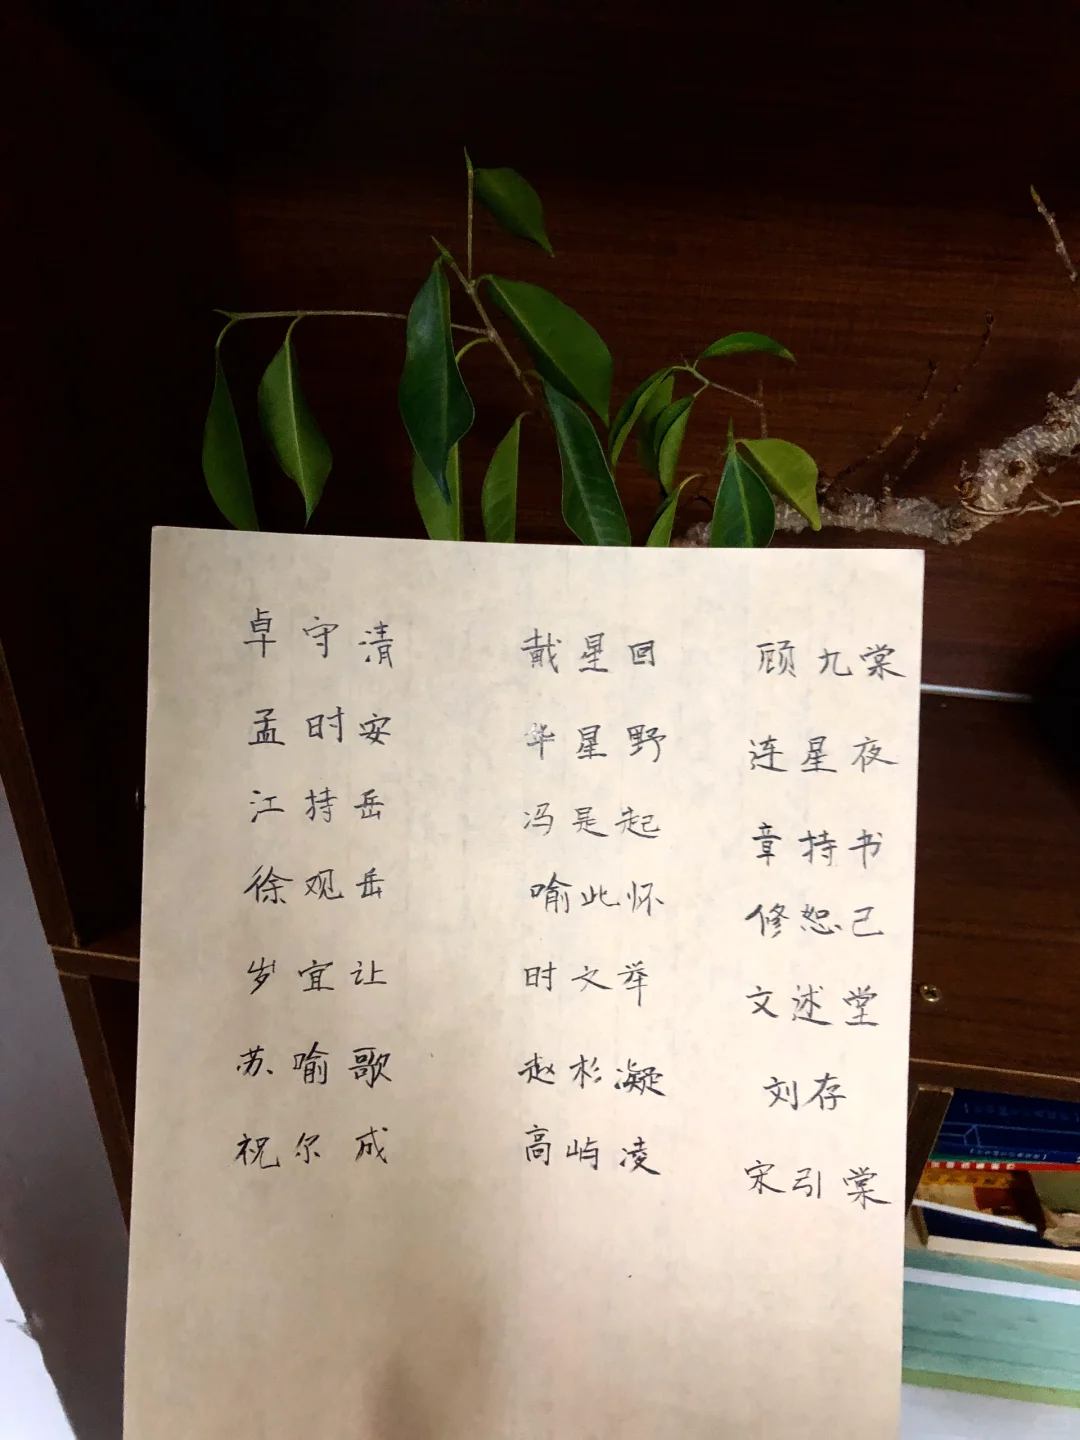 卓守清
孟时安
江持岳
徐观岳
岁宜让
苏喻歌
祝尔成
戴星回
华星野
冯昰起
喻此怀
时文举
赵杉凝
高屿凌
顾九棠
连星夜
章持书
修恕己
文述堂
刘存
宋引棠